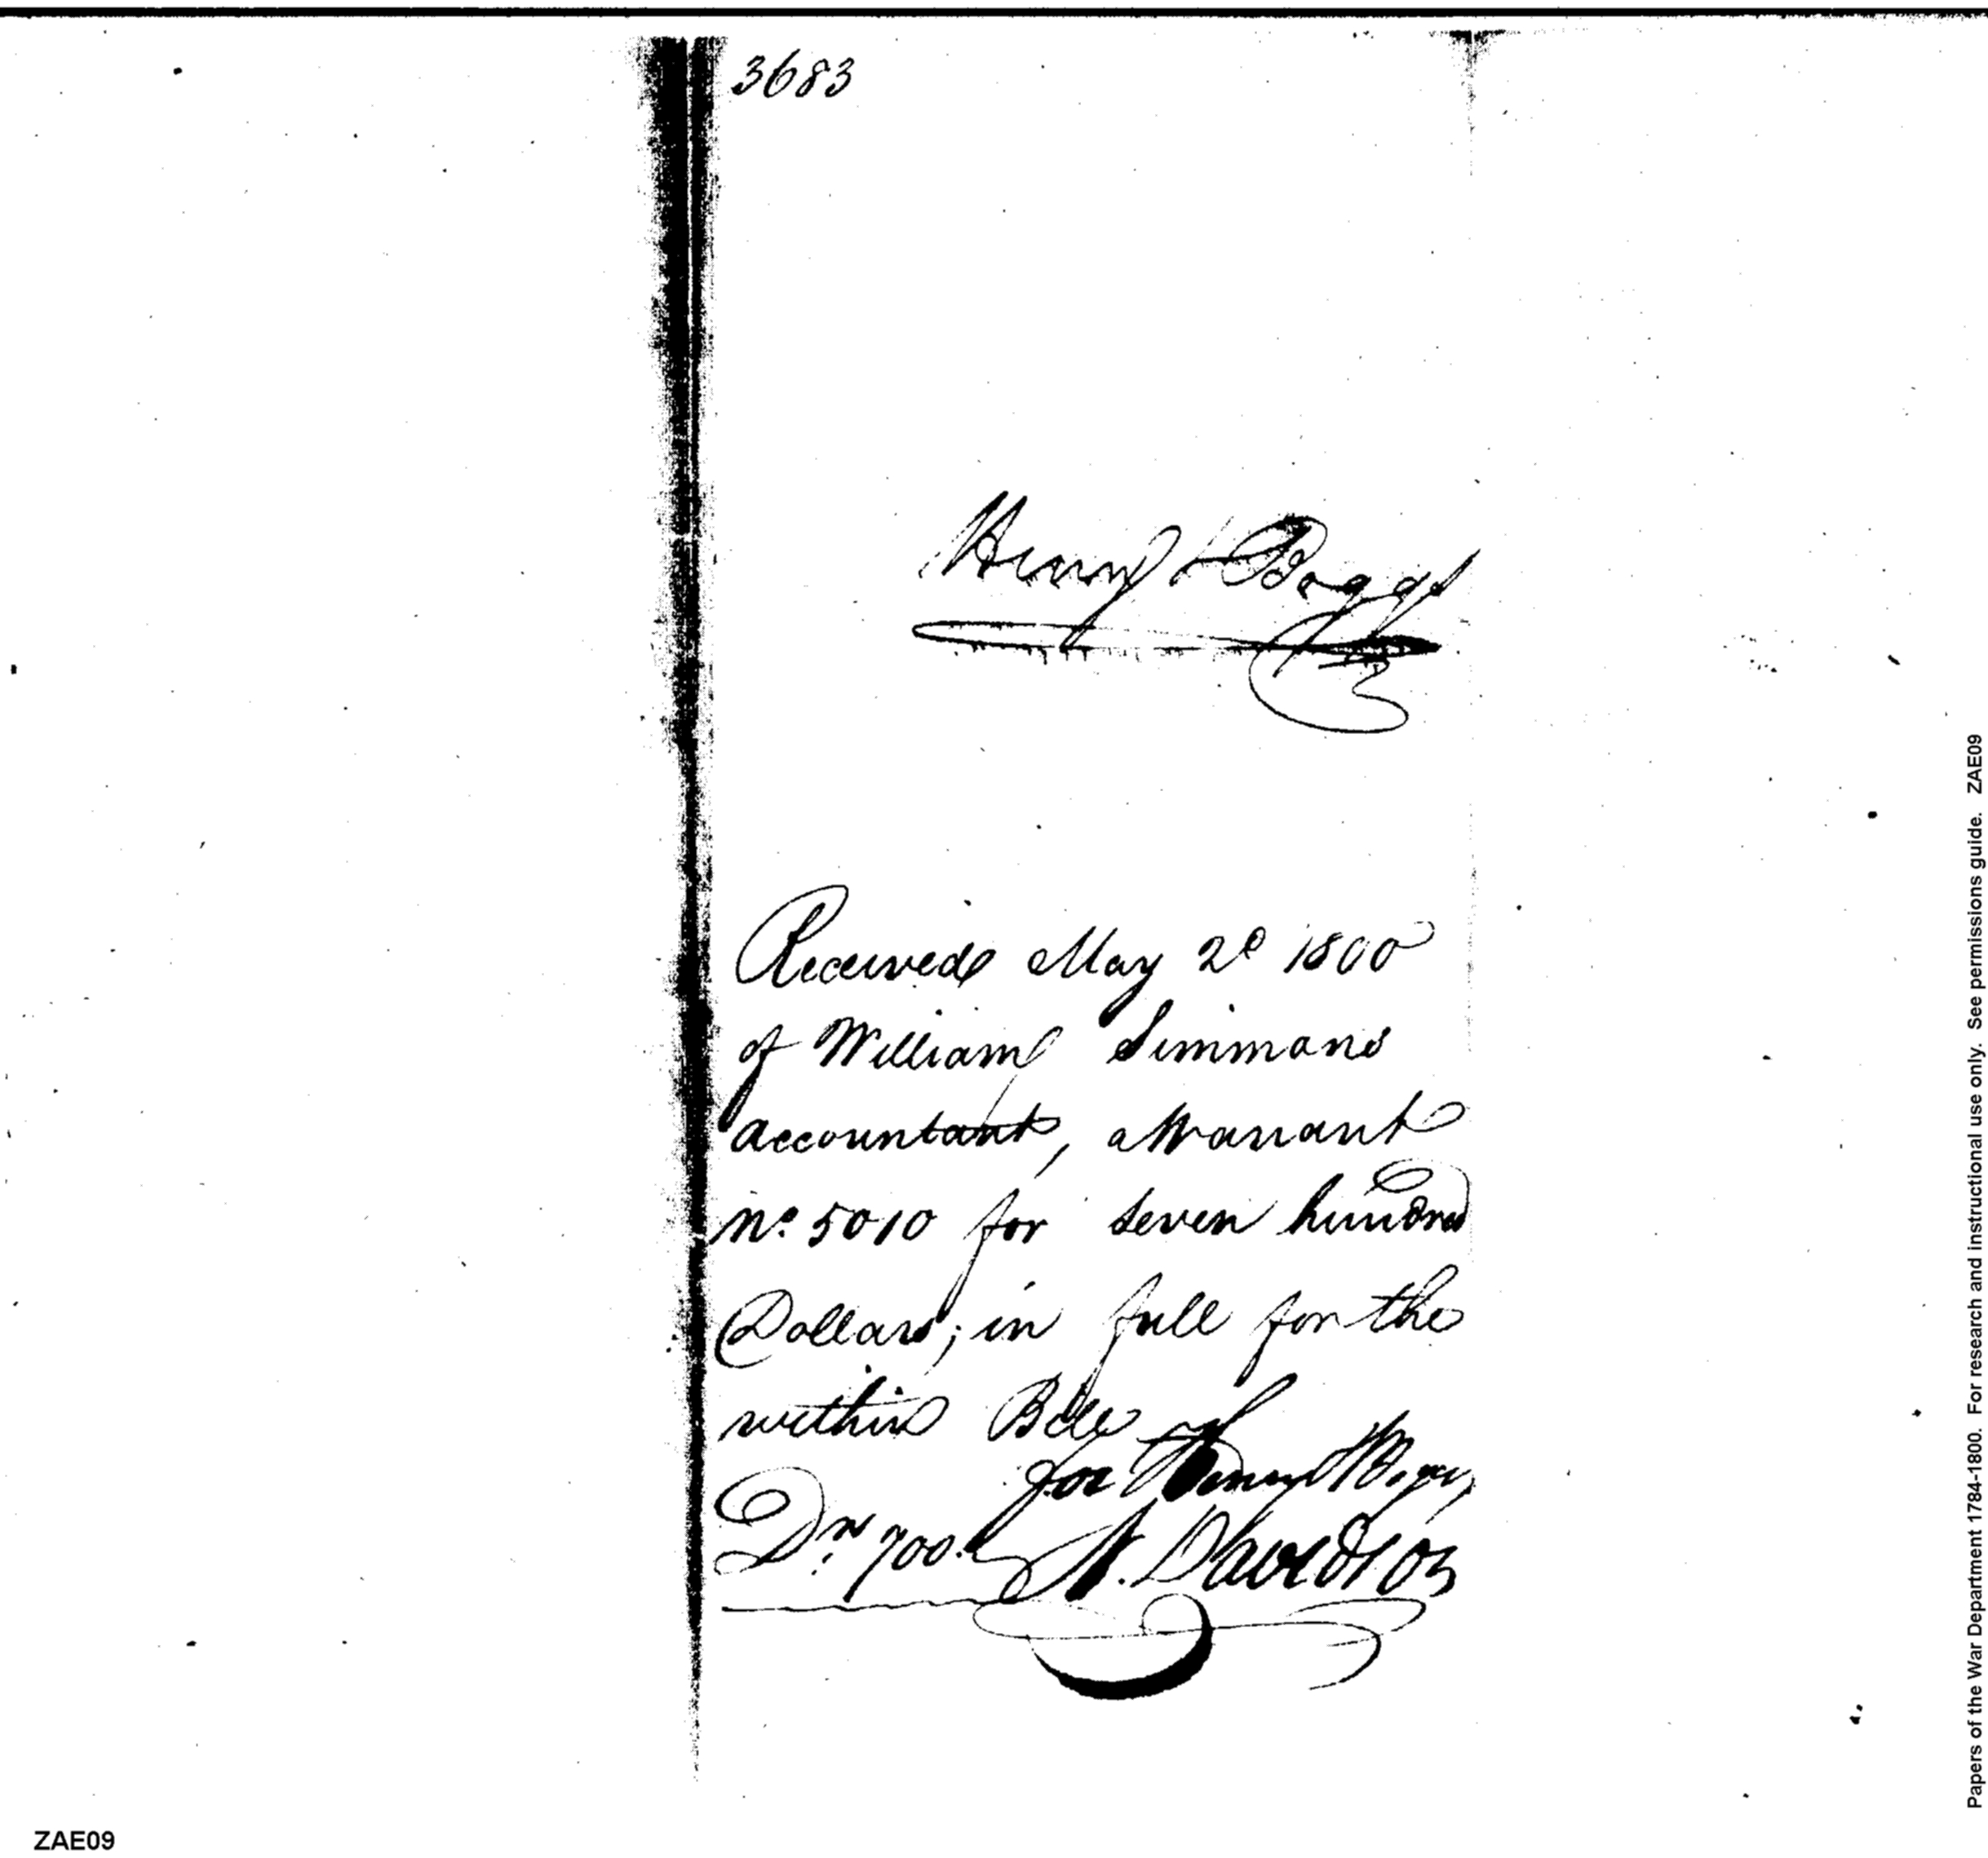 3683
Henry Boggs
Received May 2d 1800
of William Simmons
accountant, a Warrant
No. 5010 for seven hundred
Dollars; in full for the
within Bill
for Henry Boggs
Drs. 700.
N. Davidson
ZAE09
Papers of the War Department 1784-1800. For research and instructional use only. See permissions guide. ZAE09